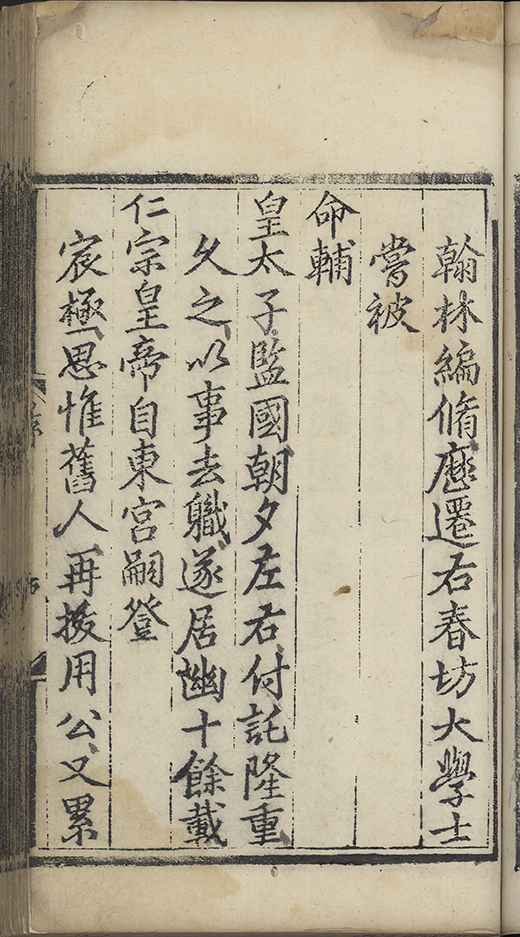 翰林編脩歷遷右春坊大學士
嘗被
命輔
皇太子監國朝夕左右付託隆重
久之以事去職遂居幽十餘載
仁宗皇帝自東宮嗣登
宸極思惟舊人再援用公又累